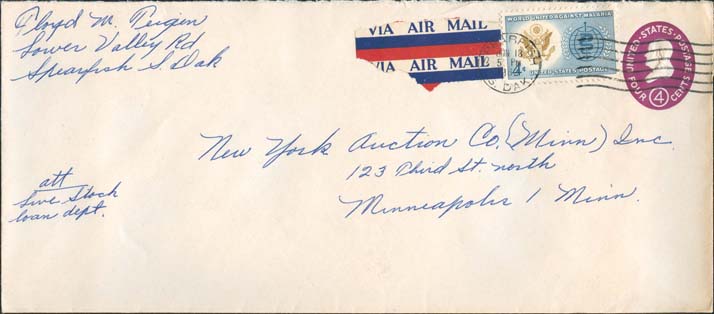 Floyd M.
Lower Valley Rd
Spearfish S. Dak
VIA AIR MAIL
VIA AIR MAIL
WORLD UNITED AGAINST MALARIA
4¢
UNITED STATES POSTAGE
5 PM
S. DAK
UNITED STATES POSTAGE
FOUR 4 CENTS
New York Auction Co. (Minn) Inc.
123 Third St. north
Minneapolis 1 Minn.
att
Live Stock
loan dept.